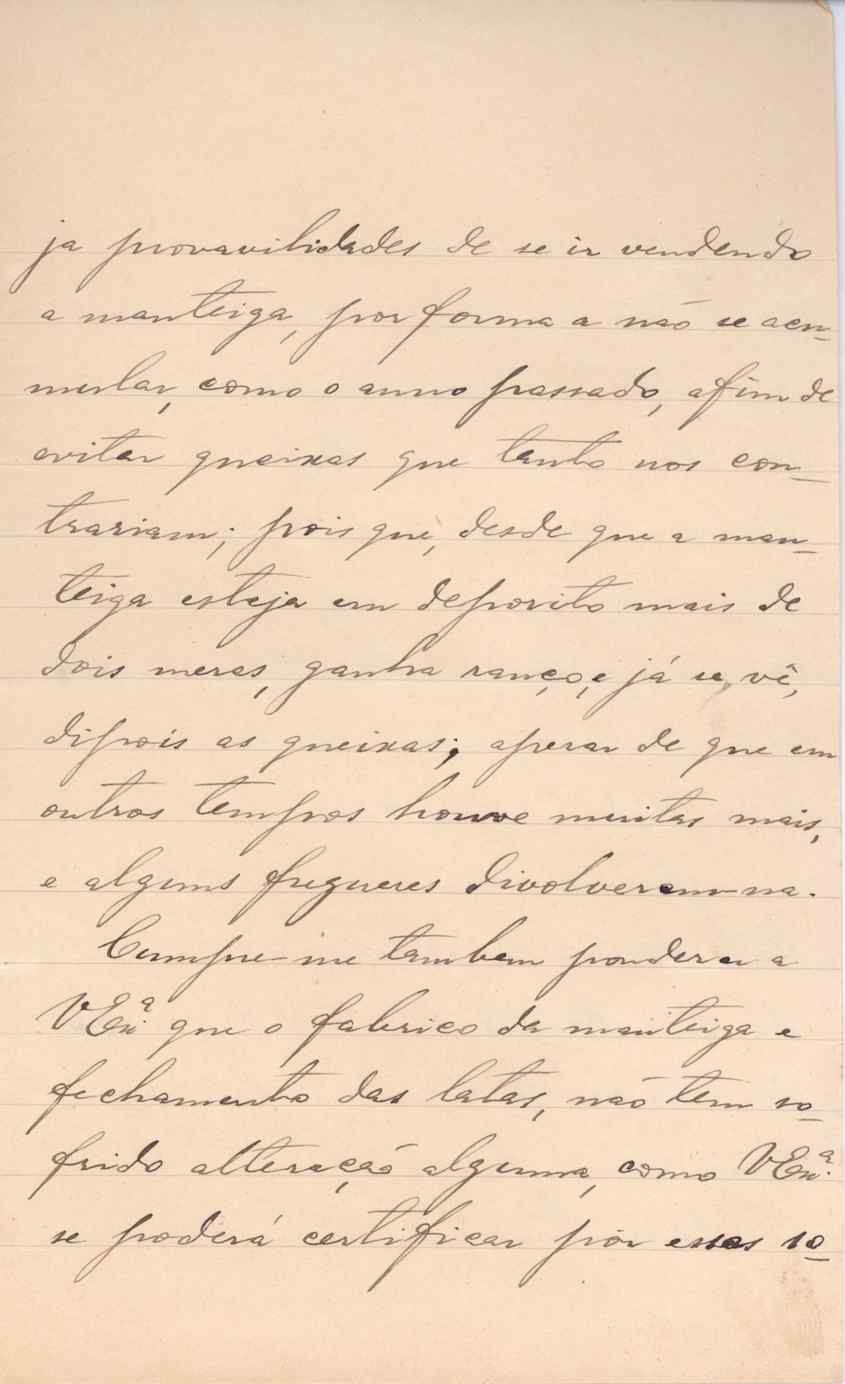 ja provavilidades de se ir vendendo
a manteiga, por forma a não se acu-
mular, como o anno passado, afim de
evitar queixas que tanto nos con-
trariam; pois que, desde que a man-
teiga esteja em deposito mais de
dois meses, ganha ranço, e já se vê,
dipois as queixas; apesar de que em
outros tempos houve muitas mais,
e alguns freguezes divolveram-na.
Cumpre-me tambem ponderar a
VExª que o fabrico da manteiga e
fechamento das latas, não tem so-
frido alteração alguma, como VExª.
se poderá certificar por esses so-